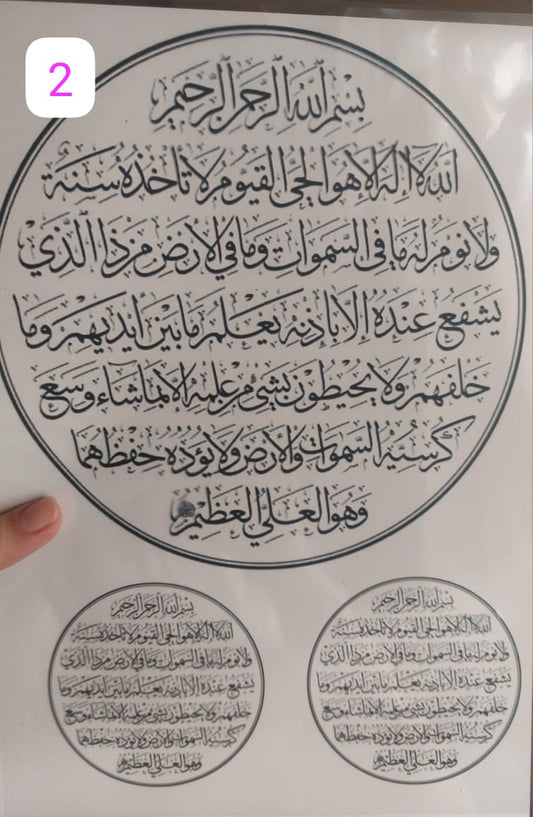 2
بسم الله الرحمن الرحيم
الله لا اله الا هو الحي القيوم لا تأخذه سنة
ولا نوم له ما في السموات وما في الارض من ذا الذي
يشفع عنده الا باذنه يعلم ما بين ايديهم وما
خلفهم ولا يحيطون بشيء من علمه الا بما شاء وسع
كرسيه السموات والارض ولا يؤده حفظهما
وهو العلي العظيم
بسم الله الرحمن الرحيم
الله لا اله الا هو الحي القيوم لا تأخذه سنة
ولا نوم له ما في السموات وما في الارض من ذا الذي
يشفع عنده الا باذنه يعلم ما بين ايديهم وما
خلفهم ولا يحيطون بشيء من علمه الا بما شاء وسع
كرسيه السموات والارض ولا يؤده حفظهما
وهو العلي العظيم
بسم الله الرحمن الرحيم
الله لا اله الا هو الحي القيوم لا تأخذه سنة
ولا نوم له ما في السموات وما في الارض من ذا الذي
يشفع عنده الا باذنه يعلم ما بين ايديهم وما
خلفهم ولا يحيطون بشيء من علمه الا بما شاء وسع
كرسيه السموات والارض ولا يؤده حفظهما
وهو العلي العظيم